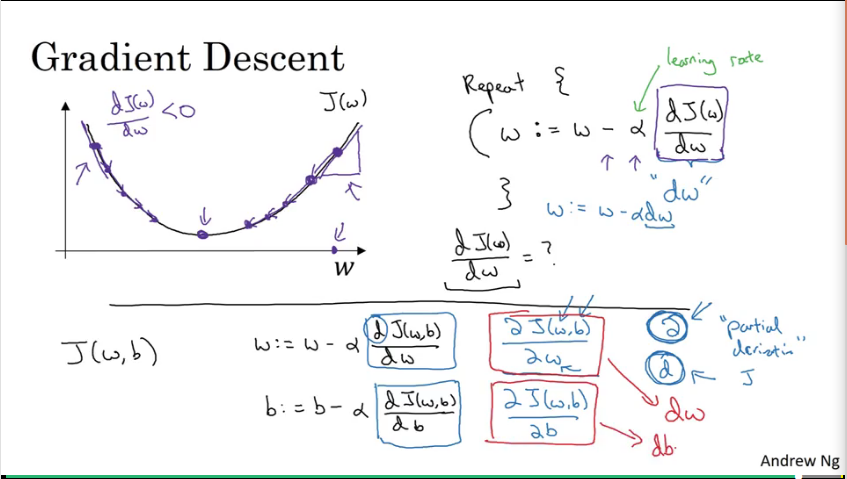 Gradient Descent
learning rate
Repeat {
dJ(w)/dw < 0
J(w)
( w := w - α dJ(w)/dw
"dw"
}
w := w - αdw
w
dJ(w)/dw = ?
J(w,b)
w := w - α dJ(w,b)/dw
∂J(w,b)/∂w
∂
"partial
derivativ"
d
J
b := b - α dJ(w,b)/db
∂J(w,b)/∂b
dw
db
Andrew Ng